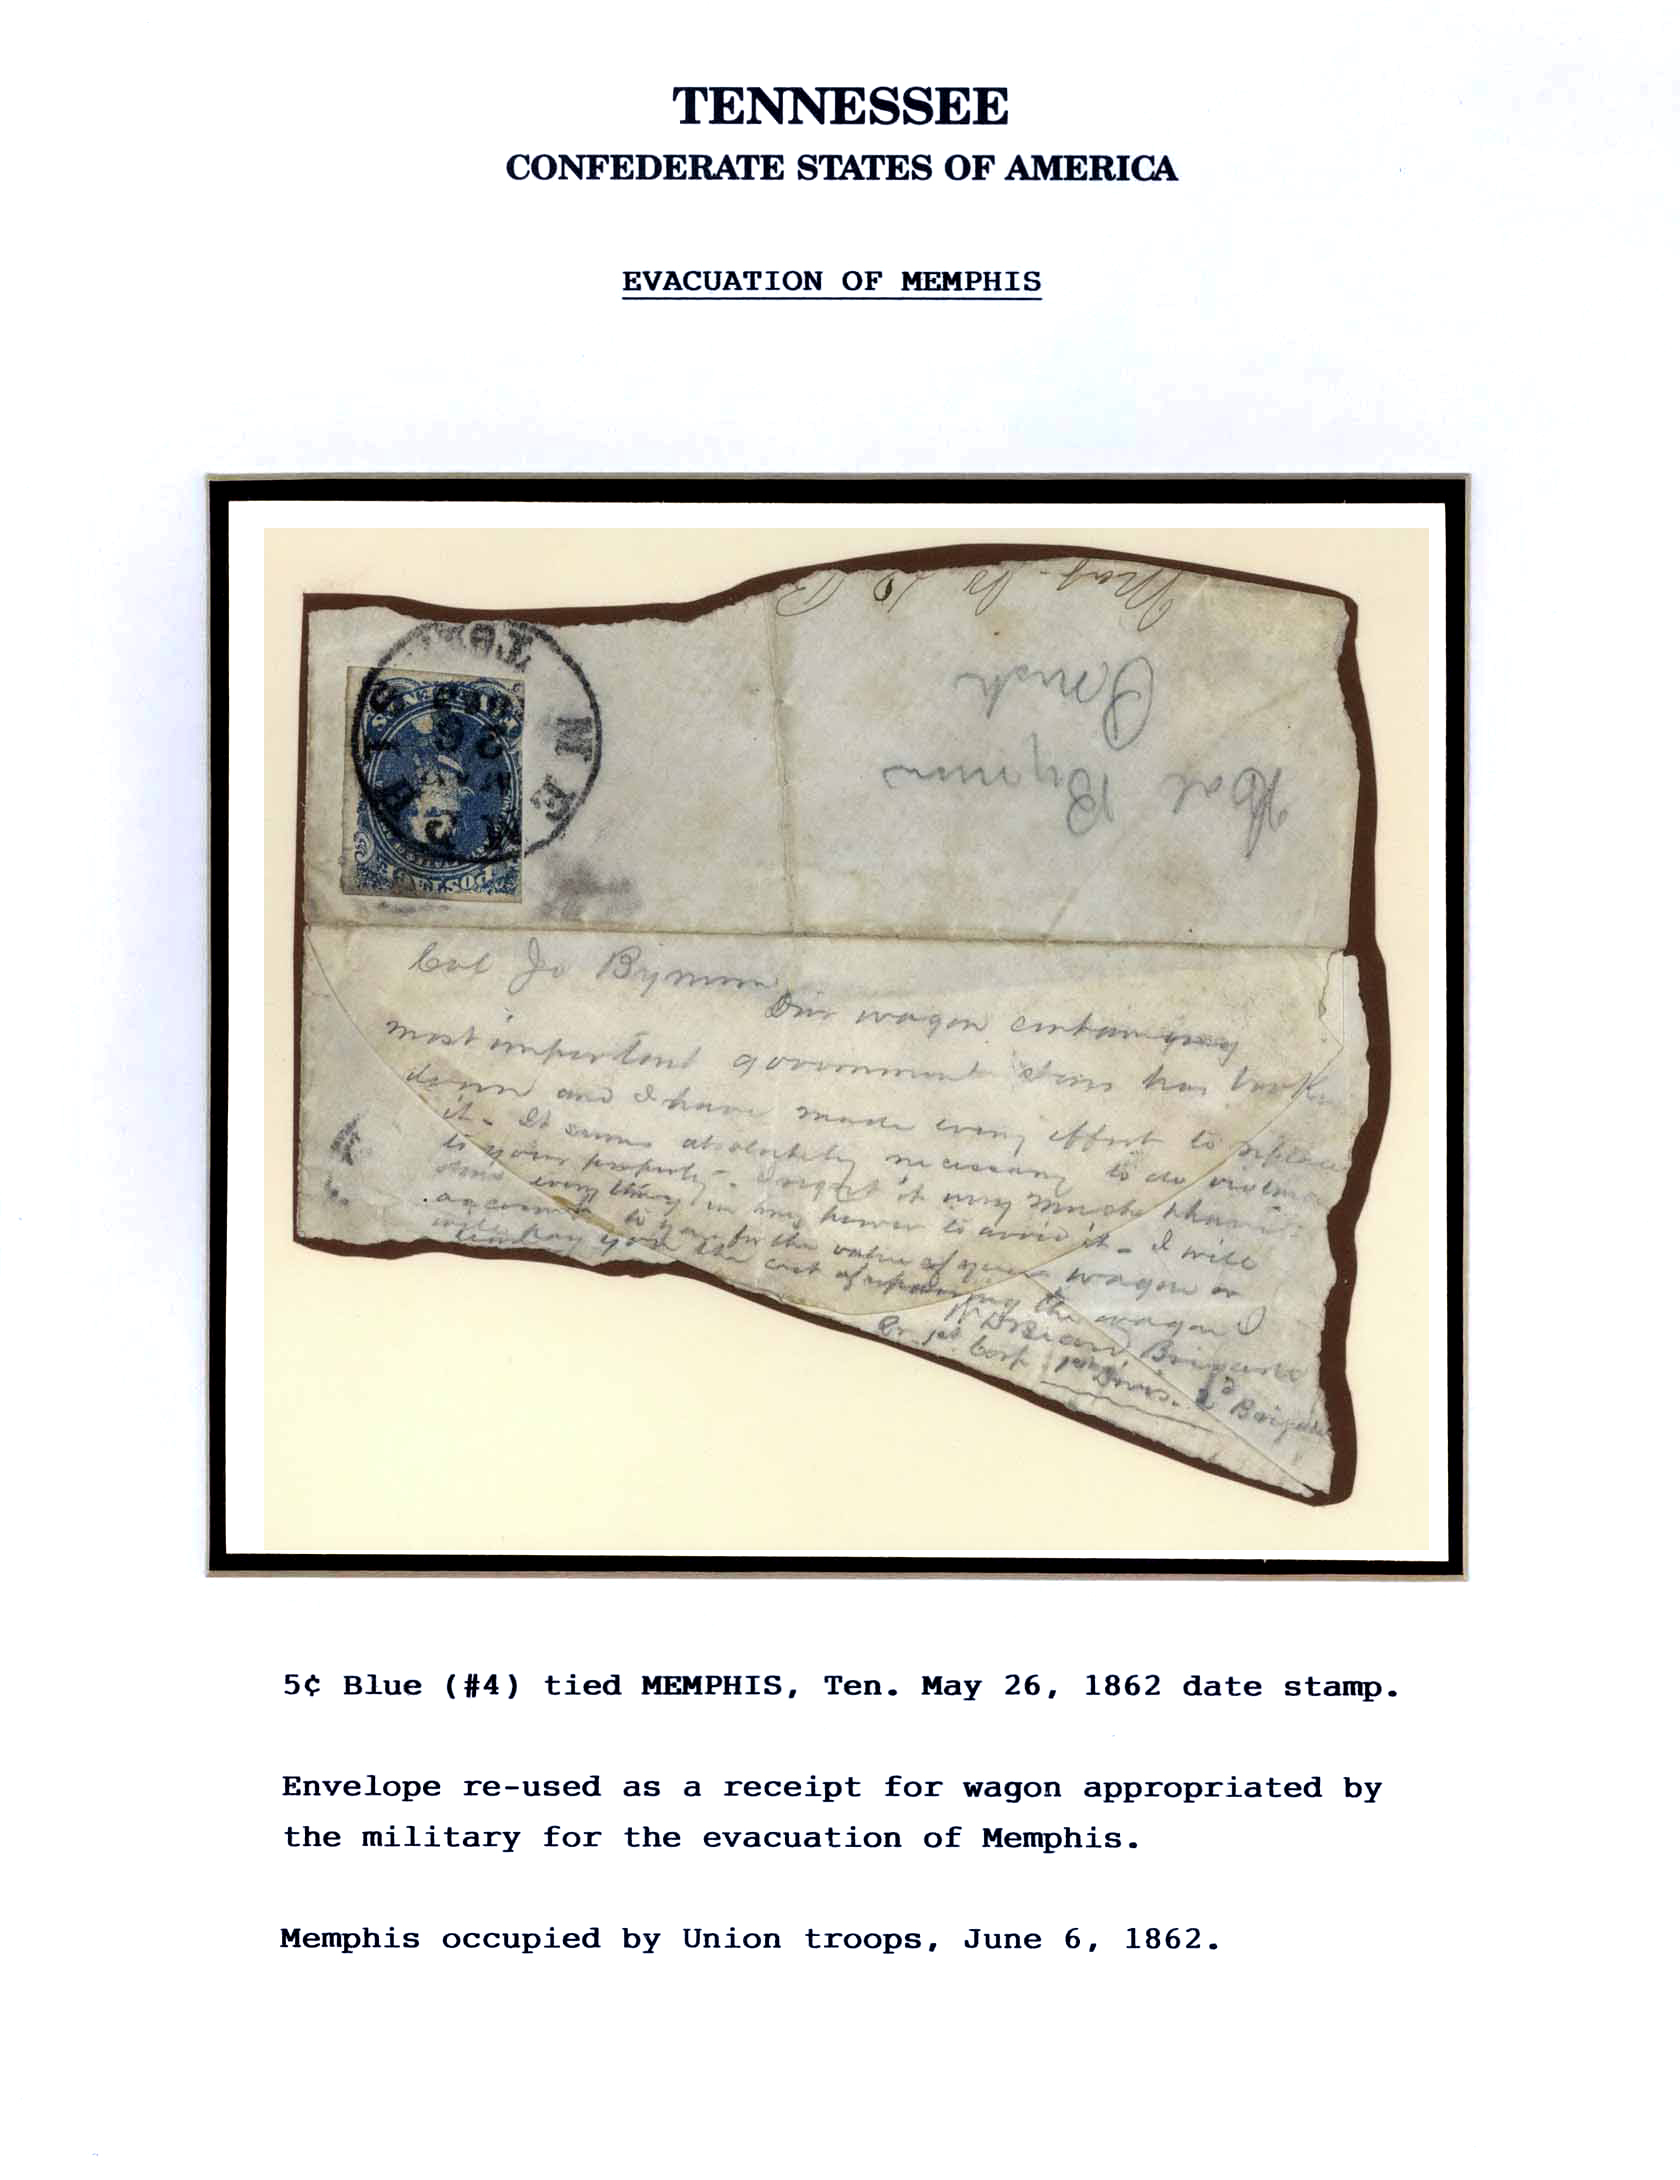 TENNESSEE
CONFEDERATE STATES OF AMERICA
EVACUATION OF MEMPHIS
MEMPHIS
26
Col Jo Bynum
wagon containing
most important government stores has broken
down and I have made every effort to replace
it - It seems absolutely necessary to do violence
to your property - I regret it very much & have
done every thing in my power to avoid it - I will
account to you for the value of your wagon or
will pay you the cost of repairing the wagon
Brigade
1st Corp 1st Divis. 2d Brigade
5¢ Blue (#4) tied MEMPHIS, Ten. May 26, 1862 date stamp.
Envelope re-used as a receipt for wagon appropriated by
the military for the evacuation of Memphis.
Memphis occupied by Union troops, June 6, 1862.